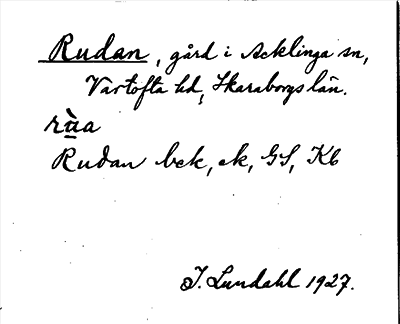 Rudan, gård i Acklinga sn,
Vartofta hd, Skaraborgs län.
rùa
Rudan bek, ek, GS, Kb
I. Lundahl 1927.